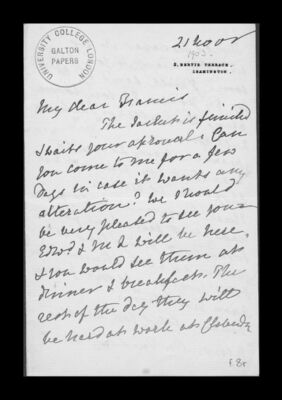 UNIVERSITY COLLEGE LONDON
GALTON PAPERS
21 Nov
1902
5, BERTIE TERRACE,
LEAMINGTON.
My dear Francis
The Jacket is finished
& waits your approval. Can
you come to me for a few
Days in case it wants any
alteration? We should
be very pleased to see you
Edwd & M. L will be here,
& you would see them at
dinner & breakfast. The
rest of the day they will
be hard at work at Claverdon